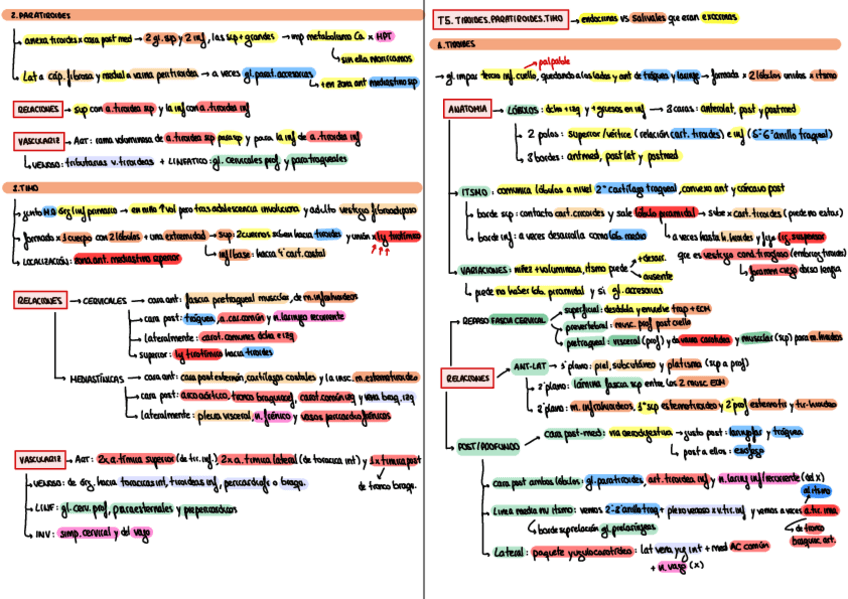 2. PARATIROIDES
anexa tiroides x cara post med → 2 gl. sup y 2 inf, las sup + grandes → mp metabolismo Ca x HPT
sin ella moriríamos
Lat a cáp. fibrosa y medial a vaina peritiroidea → a veces gl. parat. accesorias
+ en zona ant mediastino sup
RELACIONES → sup con a. tiroidea sup y la inf con a. tiroidea inf
VASCULARIZ → ART: rama voluminosa de a. tiroidea sup para sup y para la inf de a. tiroidea inf
VENOSO: tributarias v. tiroideas + LINFÁTICO: gl. cervicales prof. y paratraqueales
3. TIMO
junto MO órg linf primario → en niño ↑ vol pero tras adolescencia involuciona y adulto vestigio fibroadiposo
formado x 1 cuerpo con 2 lóbulos + una extremidad → sup: 2 cuernos suben hacia tiroides y unión x lig tirotímico
inf/base: hacia 4º cart. costal
LOCALIZACIÓN: zona ant. mediastino superior
RELACIONES → CERVICALES → cara ant: fascia pretraqueal muscular, de m. infrahioideos
cara post: tráquea, a. car. común y n. laríngeo recurrente
lateralmente: carot. comunes dcha e izq
superior: lig tirotímico hacia tiroides
MEDIASTÍNICAS → cara ant: cara post esternón, cartílagos costales y la insc. m. esternotiroideo
cara post: arco aórtico, tronco braquicef, carot común izq y vena braq. izq
lateralmente: pleura visceral, n. frénico y vasos pericardiofrénicos
VASCULARIZ → ART: 2x a. tímica superior (de tir. inf.), 2x a. tímica lateral (de torácica int) y 1x tímica post
de tronco braqu.
VENOSO: de órg. hacia torácicas int, tiroideas inf, pericardiofr o braqu.
LINF: gl. cerv. prof, paraesternales y prepericárdicos
INV: simp. cervical y del vago
T5. TIROIDES, PARATIROIDES, TIMO → endocrinas vs salivales que eran exocrinas
1. TIROIDES
palpable
→ gl. impar tercio inf. cuello, quedando a los lados y ant de tráquea y laringe → formada x 2 lóbulos unidos x itsmo
ANATOMIA → LÓBULOS: dcho + izq y + gruesos en inf → 3 caras: anterolat, post y postmed
2 polos: superior/vértice (relación cart. tiroides) e inf (5º-6º anillo traqueal)
3 bordes: antmed, post lat y postmed
ITSMO: comunica lóbulos a nivel 2º cartílago traqueal, convexo ant y cóncavo post
borde sup: contacto cart. cricoides y sale lóbulo piramidal → sube x cart. tiroides (puede no estar)
borde inf: a veces desarrolla como lób. medio
a veces hasta h. hioides y fijo x lig. suspensor
que es vestigio cond. tirogloso (embriog tiroides)
foramen ciego dorso lengua
VARIACIONES: niñez + voluminosa, itsmo puede
+ desarr.
ausente
puede no haber lób. piramidal y si gl. accesorias
REPASO FASCIA CERVICAL
superficial: desdobla y envuelve trap + ECM
prevertebral: musc. prof post cuello
pretraqueal: visceral (prof) y da vaina carotídea y muscular (sup) para m. hioideos
RELACIONES
ANT-LAT → 1º plano: piel, subcutáneo y platisma (sup a prof)
2º plano: lámina fascia sup entre los 2 musc. ECM
3º plano: m. infrahioideos, 1º sup esternotiroideo y 2º prof esternotir y tir-hioideo
POST/PROFUNDO → cara post-med: vía aerodigestiva → justo post: laringofar y tráquea
post a ellos: esófago
cara post ambos lóbulos: gl. paratiroides, art. tiroidea inf y n. laring inf/recurrente (del X)
al itsmo
Linea media inf itsmo: vemos 2º-3º anillo traq + plexo venoso x v. tir. inf y vemos a veces a. tir. ima
borde sup relación gl. prelaríngeas
de tronco braquioc. art.
Lateral: paquete yugulocarotídeo: lat vena yug int + med AC común
+ n. vago (X)